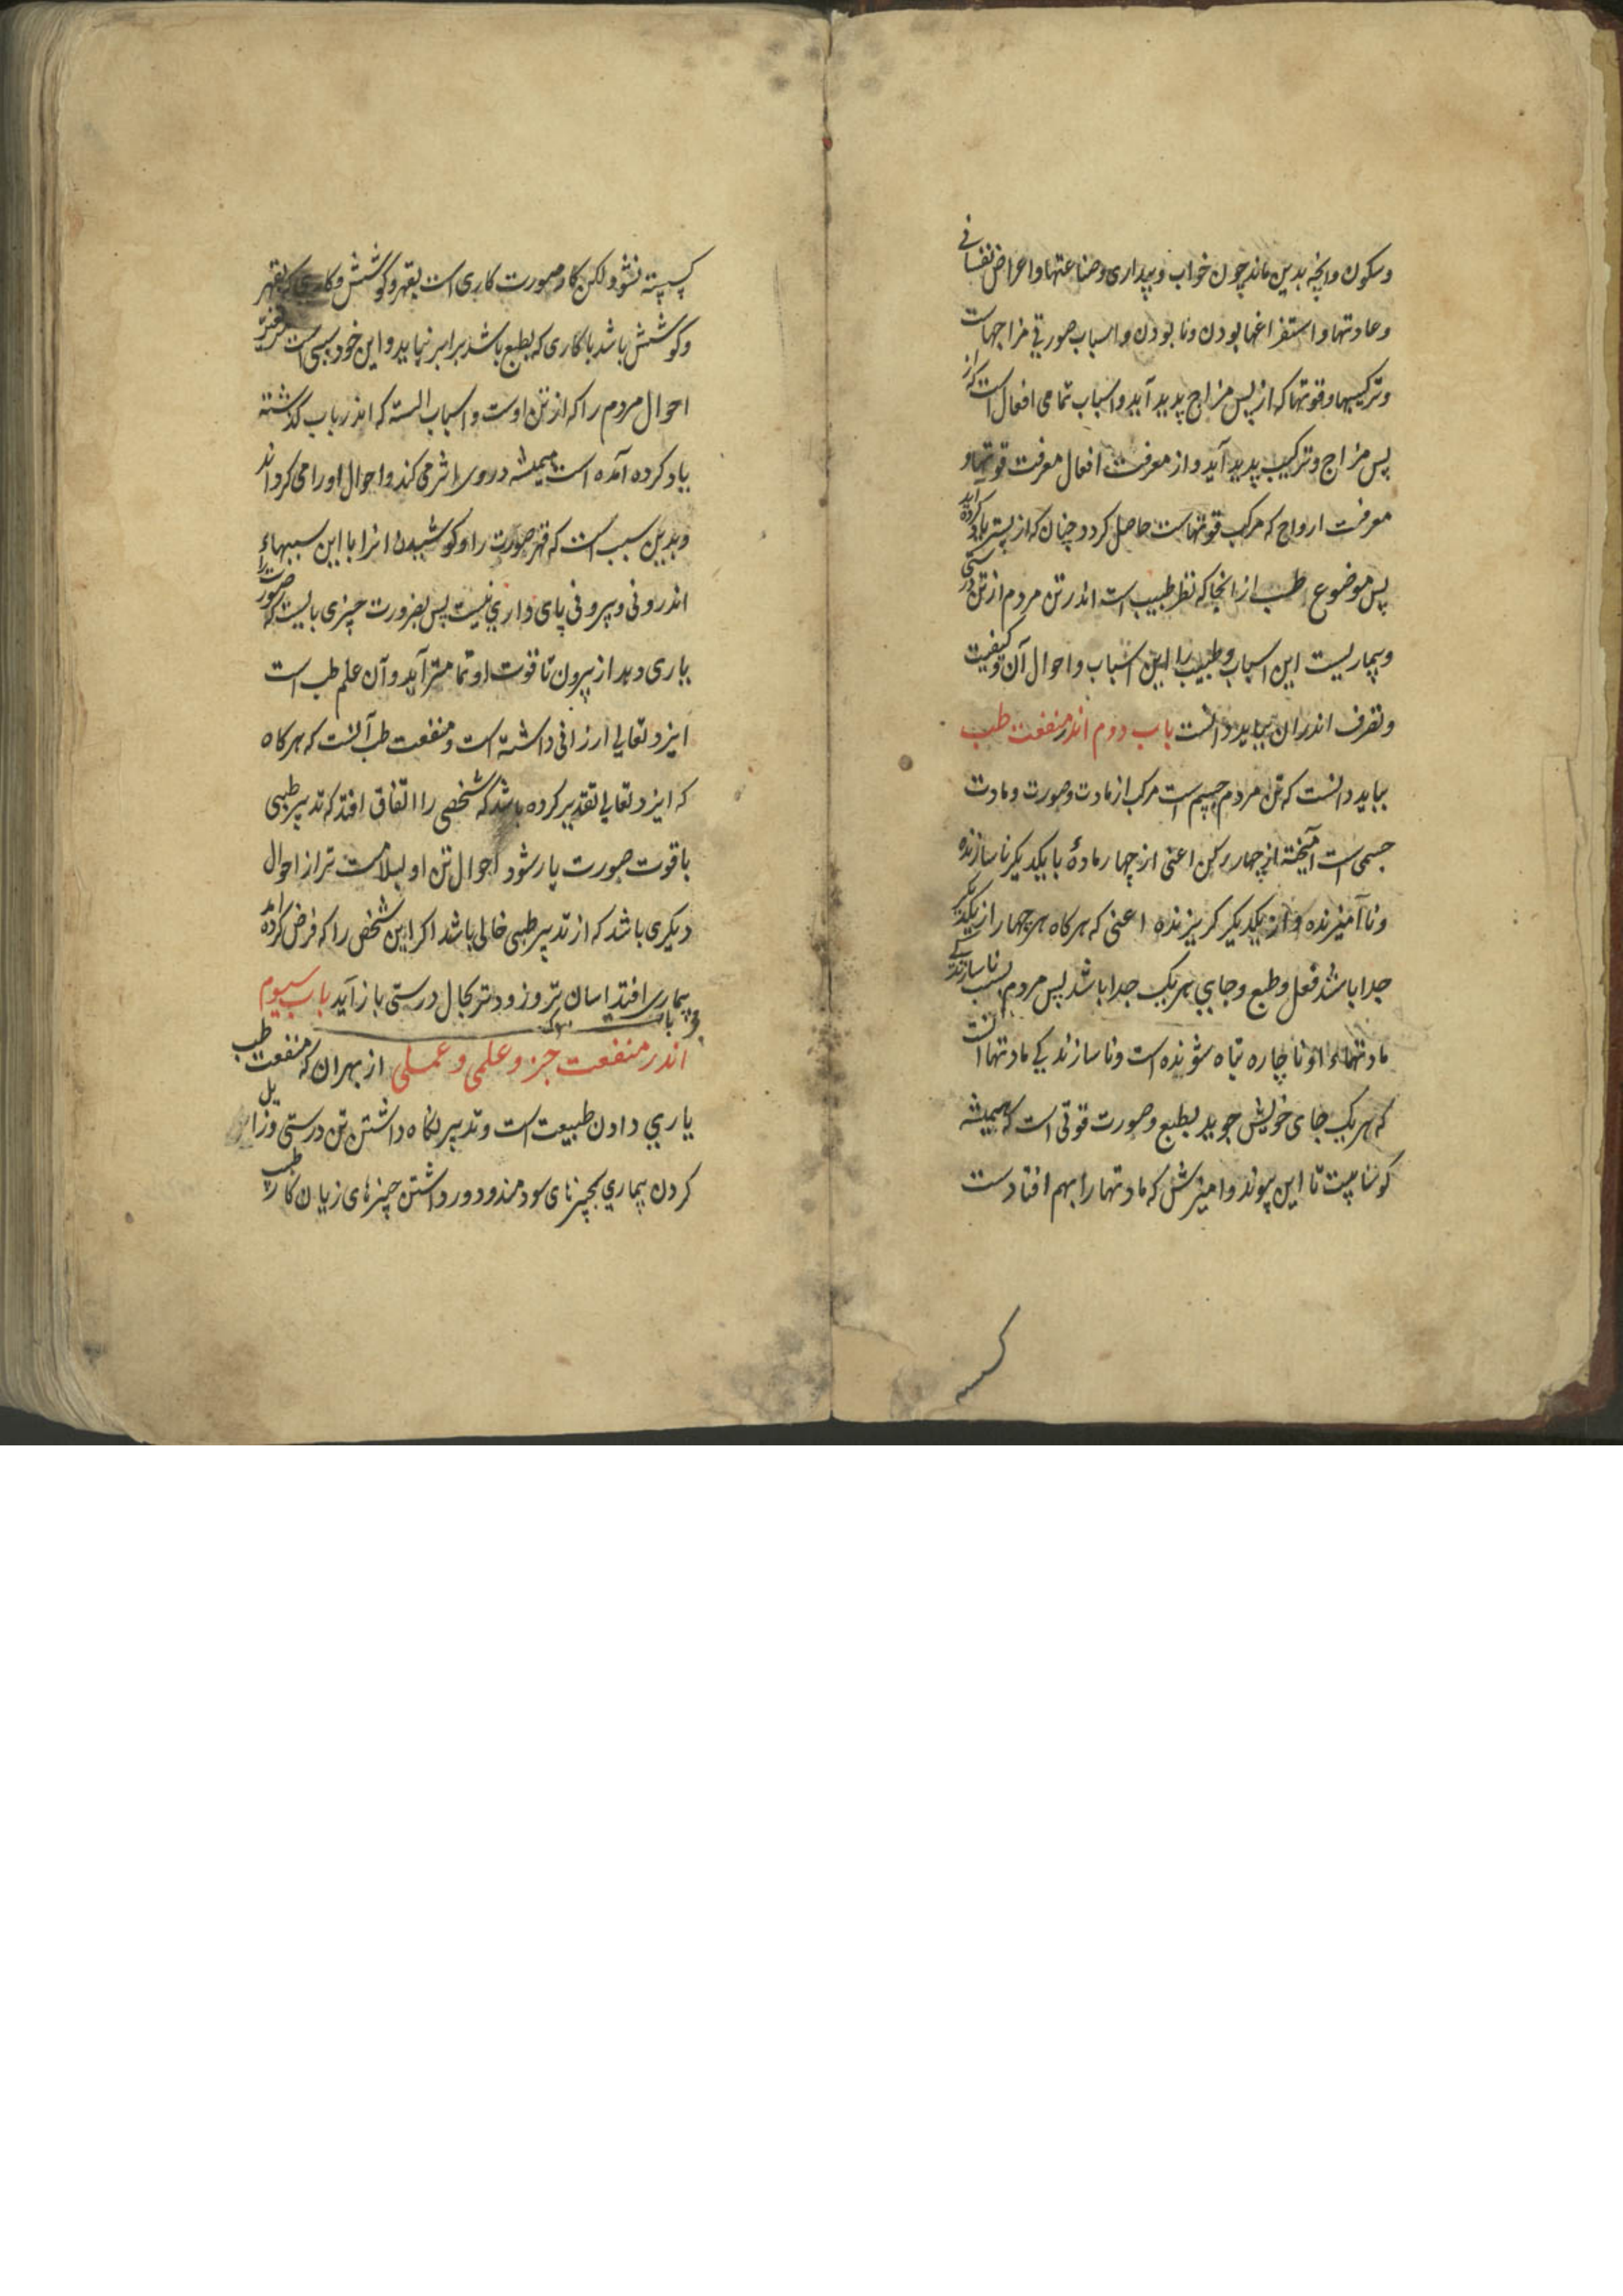 وسکون وانچه بدین ماند چون خواب وبیداری وصناعتها واعراض نفسانی
وعادتها واستفراغها بودن ونابودن واسباب صورتی مزاجهاست
وترکیبها وقوتها که از پس مزاج پدید آید واسباب تمامی افعال است که از
پس مزاج وترکیب پدید آید واز معرفت افعال معرفت قوتها و
معرفت ارواح که مرکب قوتهاست حاصل کردد چنان که از پستر یاد کرده آید
پس موضوع طب از انجا که نظر طبیب است اندر تن مردم از تن درستی
وبیماریست این اسباب وطبیب را این اسباب واحوال آن وکیفیت
وتصرف اندران بباید دانست باب دوم اندر منفعت طب
بباید دانست که تن مردم جسم است مرکب از مادت وصورت ومادت
جسمی است آمیخته از چهار رکن اعنی از چهار مادهٔ با یکدیکر ناسازنده
وناآمیزنده واز یکدیکر کریزنده اعنی که هرکاه هر چهار از یکدیکر
جدا باشد فعل وطبع وجایي هر یک جدا باشد پس مردم بسبب ناسازندکی
مادتهاء او ناچاره تباه شونده است وناسازندیکی مادتها انست
که هر یک جای خویش جوید بطبع وصورت قوتی است که همیشه
کوشاست تا این پیوند وامیزش که مادتها را بهم افتادست
کسسته
کسسته نشود ولکن کار صورت کاری است بقهر وکوشش وکاری که بقهر
وکوشش باشد با کاری که بطبع باشد برابر نیاید واین خود سببی است
احوال مردم را که از تن اوست واسباب السته که اندر باب کذشته
یاد کرده آمده است همیشه در وی اثر می کند واحوال او را می کرداند
وبدین سبب است که قهر صورت را وکوشیدن انرا با این سببهاء
اندرونی وبیرونی پای داری نیست پس بضرورت چیزی بایست که صورت را
یاری دهد از بیرون تا قوت او تمامتر آید وآن علم طب است
ایزد تعالی ارزانی داشته است ومنفعت طب آنست که هرکاه
که ایزد تعالی تقدیر کرده باشد که شخصی را اتفاق افتد که تدبیر طبی
با قوت صورت یار شود احوال تن او بسلامت تر از احوال
دیکری باشد که از تدبیر طبی خالی باشد اکر این شخص را که فرض کرده اید
بیماری افتد اسان تر وزودتر بحال درستی باز آید باب سیوم
اندر منفعت جزو علمی وعملی از بهران که منفعت طب
یاري دادن طبیعت است وتدبیر نکاه داشتن تن درستی وزایل
کردن بیماري بچیزهای سودمند ودور داشتن چیزهای زیان کار